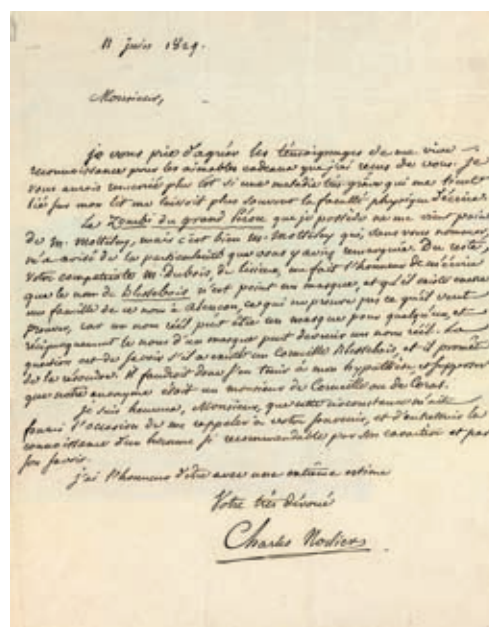 11 juin 1829.
Monsieur,
je vous prie d'agréer les témoignages de ma vive
reconnaissance pour les aimables cadeaux que j'ai reçus de vous. Je
vous aurois remercié plus tôt si une maladie très grave qui me tient
lié sur mon lit me laissoit plus souvent la faculté physique d'écrire.
Le Zombi du grand Pérou que je possède ne me vient point
de M. Motteley, mais c'est bien M. Motteley qui, sans vous nommer,
m'a avisé de la particularité que vous y aviez remarquée. Du reste,
votre compatriote M. Dubois, de Lisieux, me fait l'honneur de m'écrire
que le nom de Blessebois n'est point un masque, et qu'il existe encore
une famille de ce nom à Alençon, ce qui ne prouve pas ce qu'il veut
prouver, car un nom réel peut être un masque pour quelqu'un, et
réciproquement le nom d'un masque peut devenir un nom réel. La
question est de savoir s'il a existé un Corneille Blessebois, et il promet
de la résoudre. Il faudroit donc s'en tenir à mon hypothèse, et supposer
que notre anonyme étoit un monsieur de Corneille ou de Ceras.
je suis heureux, Monsieur, que cette circonstance m'ait
fourni l'occasion de me rappeler à votre souvenir, et d'entretenir la
connaissance d'un homme si recommandable par son caractère et par
son savoir.
j'ai l'honneur d'être avec une extrême estime
Votre très dévoué
Charles Nodier